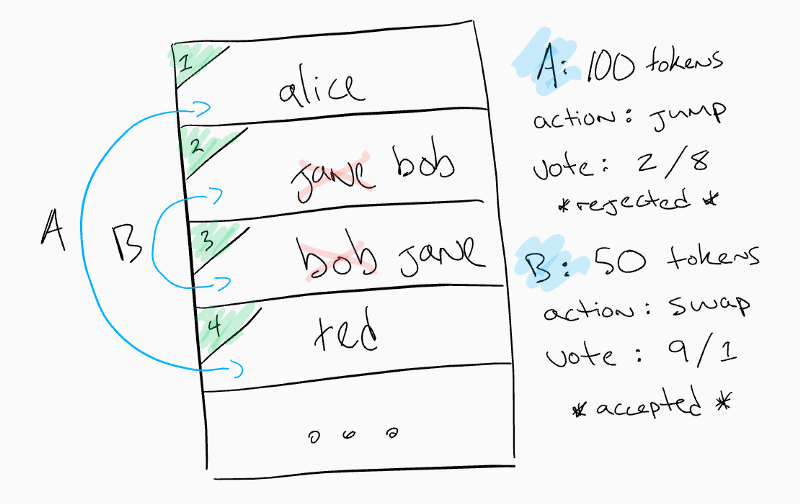 1
alice
2
jane bob
3
bob jane
4
ted
...
A
B
A: 100 tokens
action: jump
vote: 2/8
*rejected*
B: 50 tokens
action: swap
vote: 9/1
*accepted*